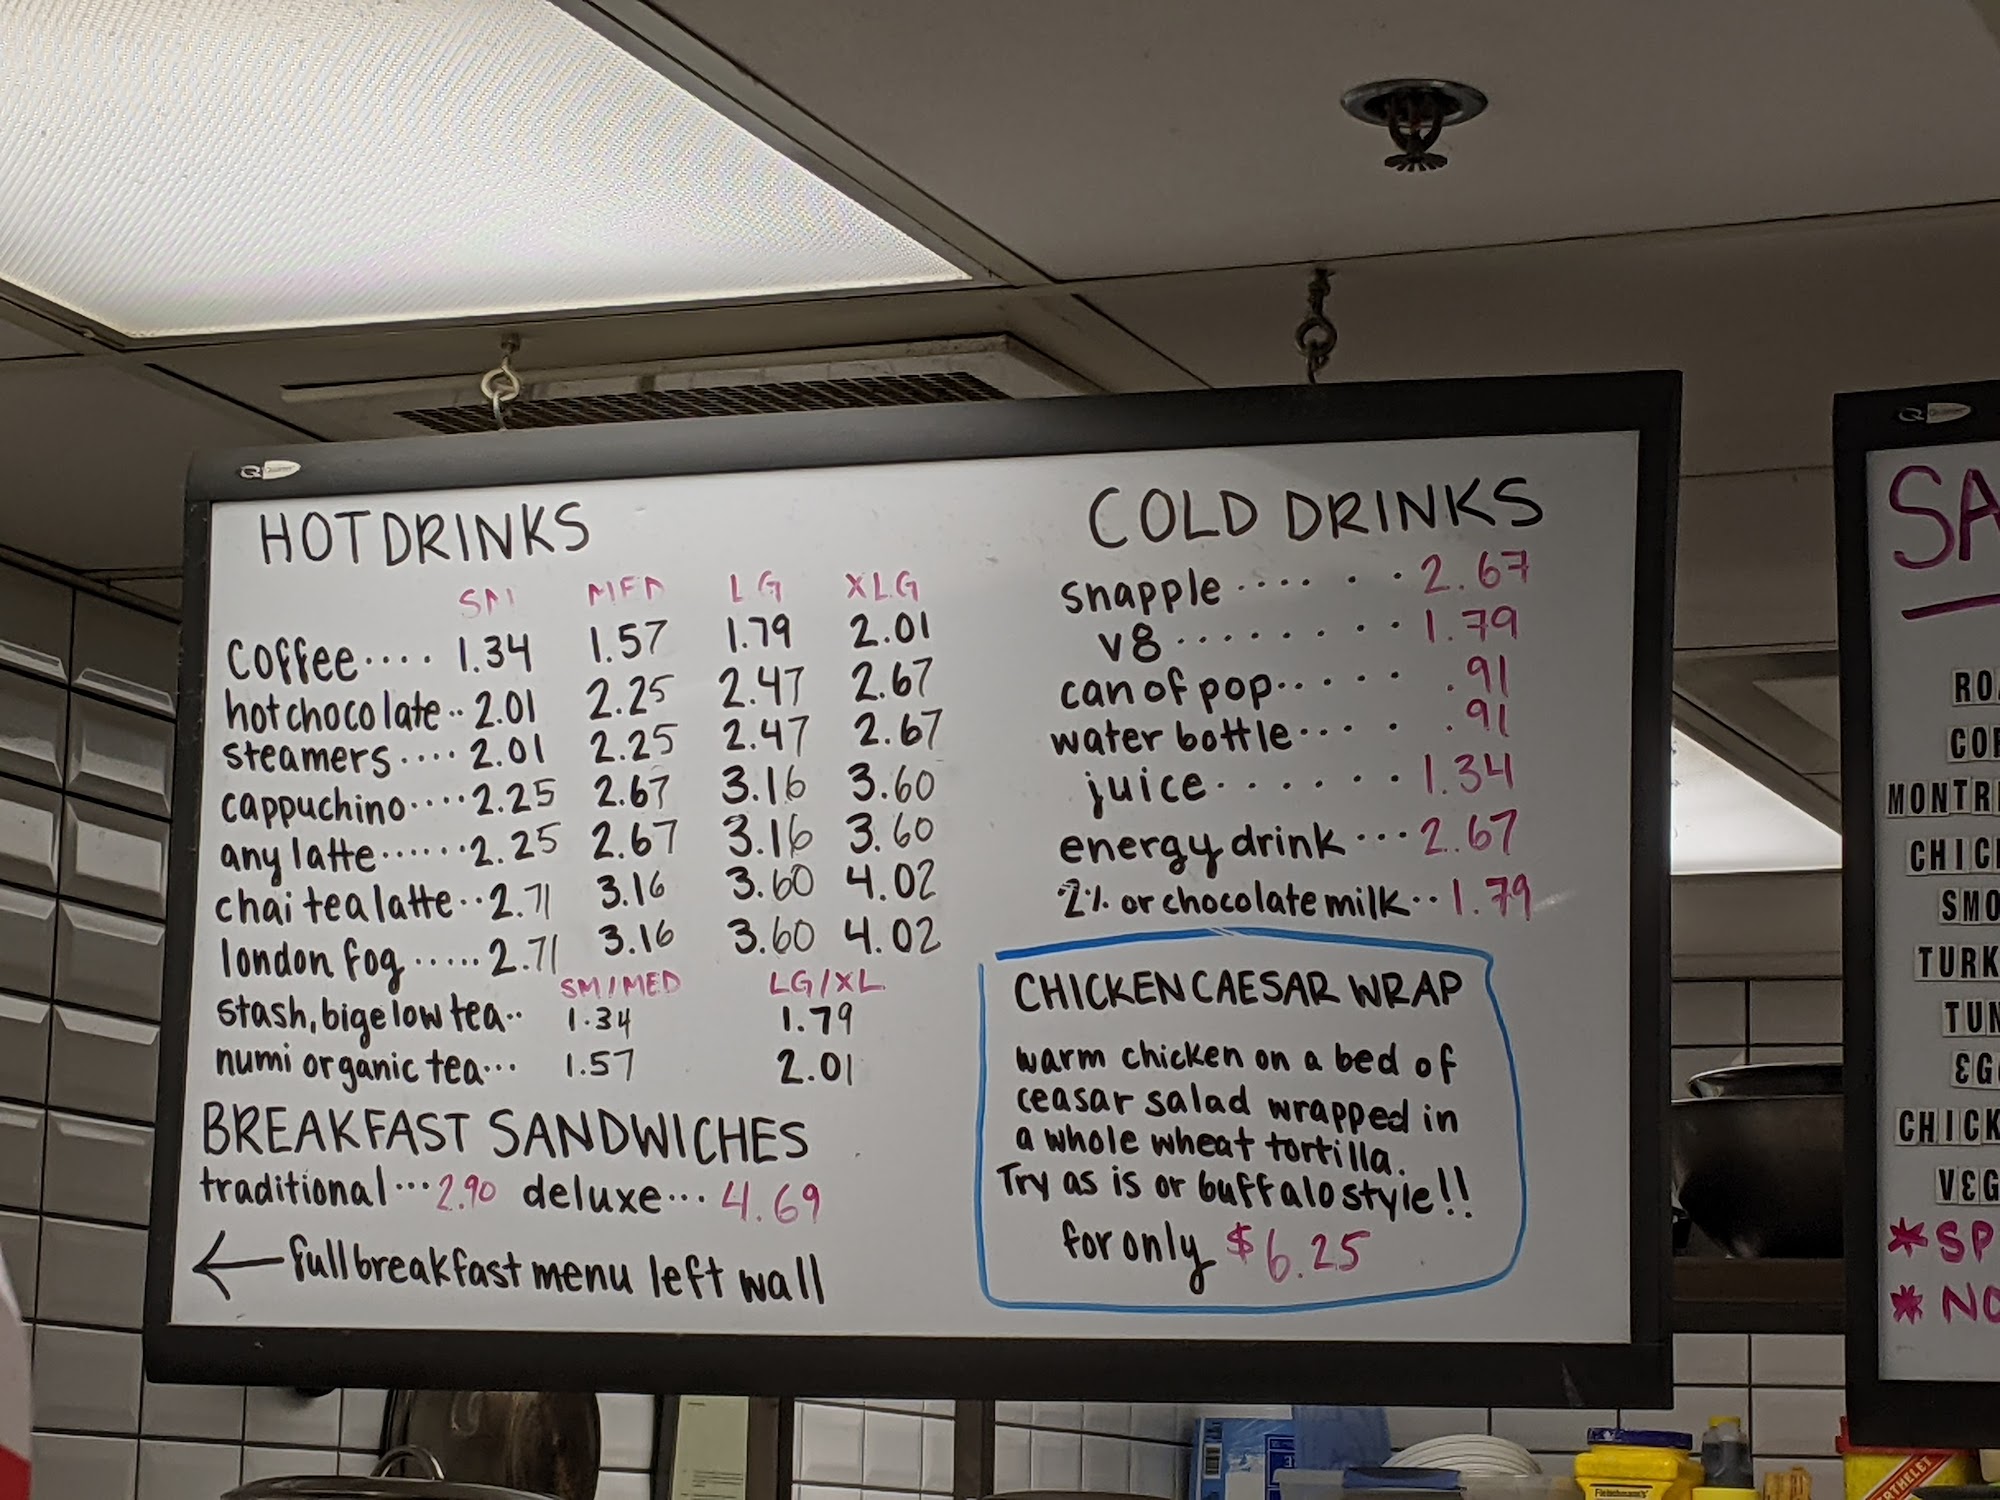 HOT DRINKS
SM MED LG XLG
Coffee.... 1.34 1.57 1.79 2.01
hot chocolate.. 2.01 2.25 2.47 2.67
steamers.... 2.01 2.25 2.47 2.67
cappuchino.... 2.25 2.67 3.16 3.60
any latte...... 2.25 2.67 3.16 3.60
chai tea latte.. 2.71 3.16 3.60 4.02
london fog..... 2.71 3.16 3.60 4.02
SM/MED LG/XL
stash, bigelow tea.. 1.34 1.79
numi organic tea... 1.57 2.01
BREAKFAST SANDWICHES
traditional... 2.90 deluxe... 4.69
← full breakfast menu left wall
COLD DRINKS
snapple...... 2.67
v8........ 1.79
can of pop..... .91
water bottle.... .91
juice...... 1.34
energy drink... 2.67
2% or chocolate milk.. 1.79
CHICKEN CAESAR WRAP
warm chicken on a bed of
ceasar salad wrapped in
a whole wheat tortilla.
Try as is or buffalo style!!
for only $6.25
SA
RO
CO
MONTR
CHIC
SMO
TURK
TUN
EG
CHICK
VEG
*SP
*NO
Fleischmann's